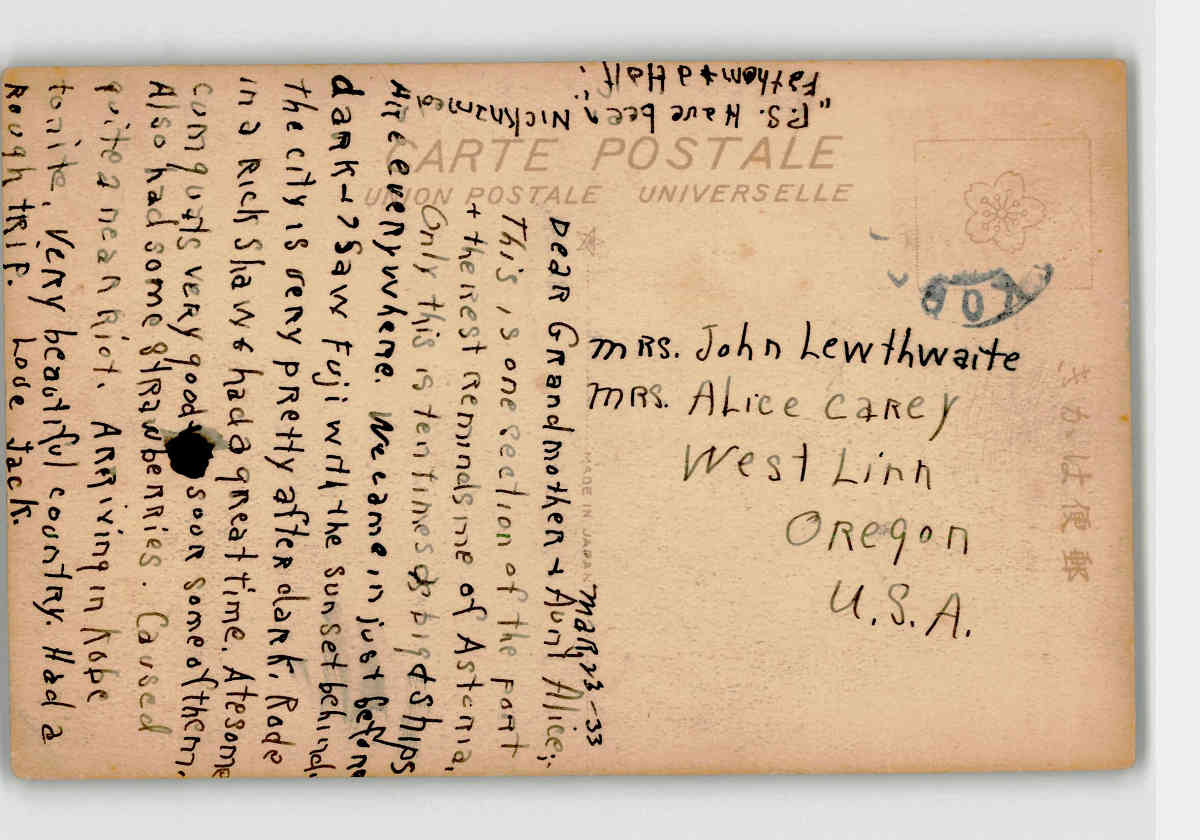 CARTE POSTALE
UNION POSTALE UNIVERSELLE
MADE IN JAPAN
きかは便郵
Mrs. John Lewthwaite
Mrs. Alice Carey
West Linn
Oregon
U.S.A.
Mar, 23-33
Dear Grandmother + Aunt Alice;
This is one section of the port
+ the rest reminds me of Astoria,
Only this is ten times as big + ships
are everywhere. We came in just before
dark - Saw Fuji with the sunset behind.
The city is very pretty after dark. Rode
in a Rick Shaw + had a great time. Ate some
cumquats very good + sour some of them.
Also had some strawberries. Caused
quite a near Riot. Arriving in Kobe
tonite. Very beautiful country. Had a
Rough trip. Love Jack.
"P.S. Have been Nicknamed
Fathom + a Half".